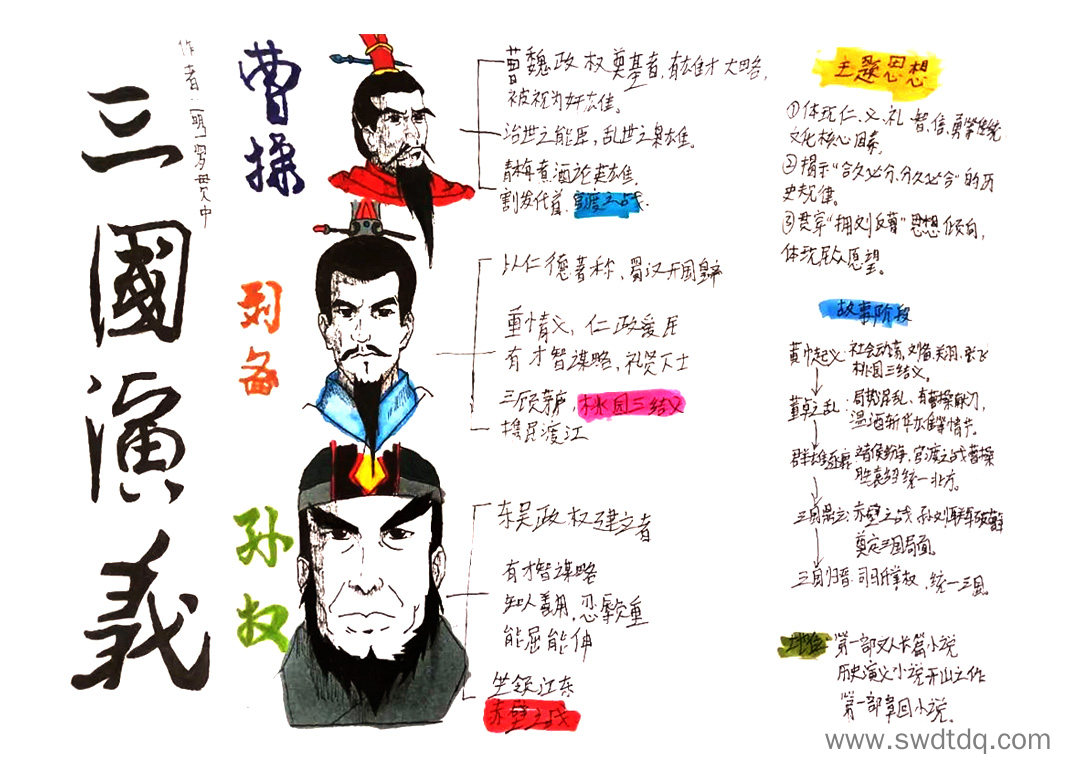 三國演義
作者：(明)罗贯中
曹操
曹魏政权奠基者，有雄才大略，
被视为奸雄。
治世之能臣，乱世之枭雄。
青梅煮酒论英雄，
割发代首，官渡之战。
刘备
以仁德著称、蜀汉开国皇帝
重情义，仁政爱民
有才智谋略，礼贤下士
三顾茅庐，桃园三结义
携民渡江
孙权
东吴政权建立者
有才智谋略
知人善用，忍辱负重
能屈能伸
坐领江东
赤壁之战
主题思想
①体现仁、义、礼、智、信、勇等传统
文化核心因素。
②揭示“合久必分，分久必合”的历
史规律。
③贯穿“拥刘反曹”思想倾向，
体现民众愿望。
故事阶段
黄巾起义：社会动荡，刘备、关羽、张飞
桃园三结义。
董卓之乱：局势混乱，有曹操献刀，
温酒斩华雄等情节。
群雄逐鹿：诸侯纷争，官渡之战曹操
胜袁绍统一北方。
三国鼎立：赤壁之战，孙刘联军破曹军
奠定三国局面。
三国归晋：司马氏掌权，统一三国。
地位
第一部文人长篇小说
历史演义小说开山之作
第一部章回小说。
www.swdtdq.com